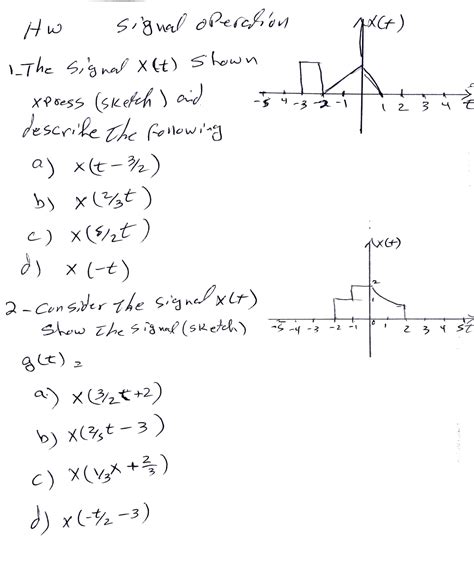 HW Signal operation
1_The Signal X(t) Shown
xpress (sketch) and
describe the following
a) x(t-3/2)
b) x(2/3t)
c) x(5/2t)
d) x(-t)
x(t)
-5 4 -3 -2 -1 1 2 3 4 t
2-Consider the signal x(t)
Show the signal (sketch)
g(t) =
a) x(3/2t+2)
b) x(2/5t-3)
c) x(1/3x+2/3)
d) x(-t/2-3)
x(t)
2
1
-5 -4 -3 -2 -1 0 1 2 3 4 5 t